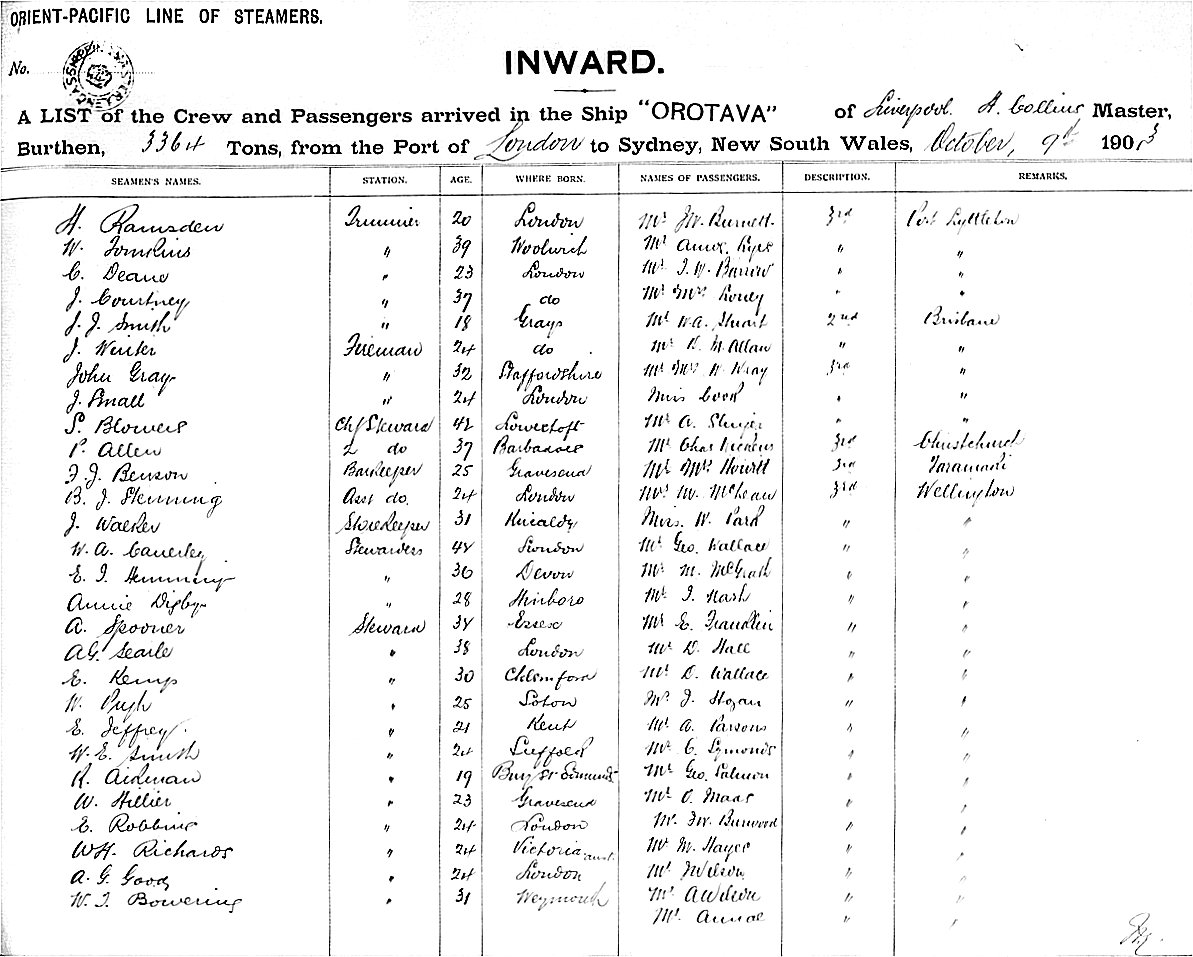 ORIENT-PACIFIC LINE OF STEAMERS.
No.
INWARD.
A LIST of the Crew and Passengers arrived in the Ship "OROTAVA" of Liverpool. A. Collins Master,
Burthen, 3364 Tons, from the Port of London to Sydney, New South Wales, October, 9th 1903
SEAMEN'S NAMES. STATION. AGE. WHERE BORN. NAMES OF PASSENGERS. DESCRIPTION. REMARKS.
H. Ramsden Trimmer 20 London Mr JW. Burnett 3rd Port Lyttleton
W. Tomkins " 39 Woolwich Mr " "
C. Deane " 23 London Mr J. W. Barrow " "
J. Courtney " 37 do Mr Mrs " "
J. J. Smith " 18 Grays Mr W.A. Stuart 2nd Brisbane
J. Winter Fireman 24 do Mr D. M. Allan " "
John Gray " 32 Staffordshire Mr Mrs W. Wray 3rd "
J. Small " 24 London Miss Cook " "
S. Blowers Chf Steward 42 Lowestoft Mr A. " "
P. Allen 2 do 37 Barbadoes Mr Chas Dickens 3rd Christchurch
F. J. Benson Barkeeper 25 Gravesend Mr Mrs Howitt 3rd Taranaki
B. J. Stemming Asst do. 24 London Mrs M. McLean 3rd Wellington
J. Walker Storekeeper 31 Kircaldy Miss. W. Park " "
W. A. Stewardess 48 London Mr Geo. Wallace " "
E. J. Hemming " 36 Devon Mr M. McGrath " "
Annie Digby " 28 Mr J. Nash " "
A. Spooner Steward 34 Essex Mr E. Franklin " "
A.G. Searle " 38 London Mr D. Hall " "
E. Kemp " 30 Chlemford Mr D. Wallace " "
W. Pugh " 25 Soton Mr J. Hogan " "
E. Jeffrey. " 21 Kent Mr A. Parsons " "
W. E. Smith " 24 Suffolk Mr C. Symonds " "
R. Aickman " 19 Bury St Edmunds Mr Geo. Salmon " "
W. Hillier " 23 Gravesend Mr O. Maas " "
E. Robbins " 24 London Mr. F.W. Burwood " "
W.H. Richards " 24 Victoria aust. Mr M. Hayes " "
A. G. Good " 24 London Mr J Wilson " "
W. J. Bowering " 31 Weymouth Mr A Wilson " "
Mr. " "